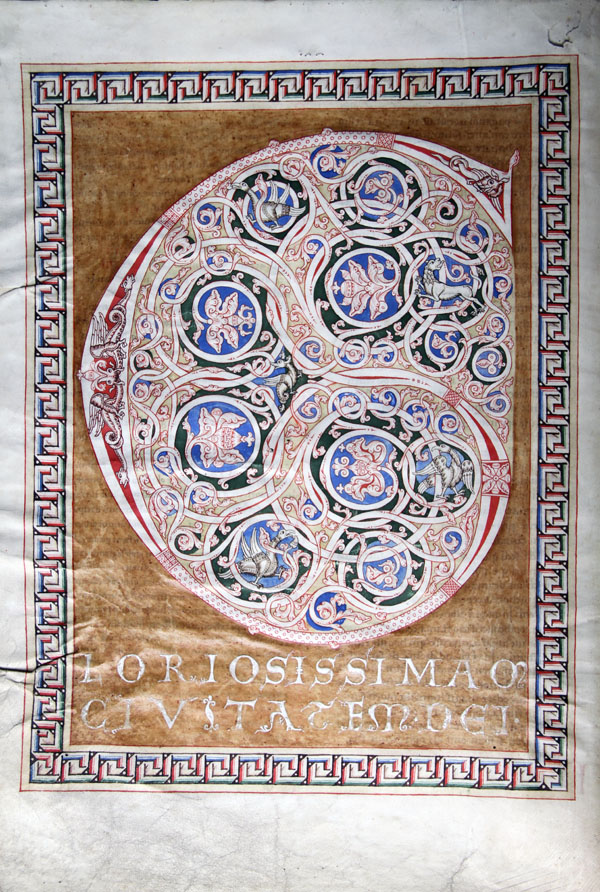 G
LORIOSISSIMAM
CIVITATEM·DEI·